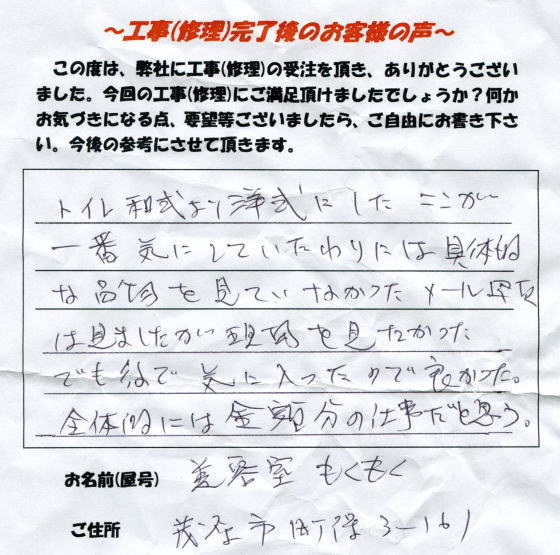 ～工事(修理)完了後のお客様の声～
この度は、弊社に工事(修理)の受注を頂き、ありがとうござい
ました。今回の工事(修理)にご満足頂けましたでしょうか？何か
お気づきになる点、要望等ございましたら、ご自由にお書き下さ
い。今後の参考にさせて頂きます。
トイレ和式より洋式にした ここが
一番気にしていたわりには具体的
な品物を見ていなかった メール写真
は見ましたが 現物を見たかった
でも後で気に入ったので良かった。
全体的には金額分の仕事だと思う。
お名前(屋号) 美容室 もくもく
ご住所 茂原市町保3-161